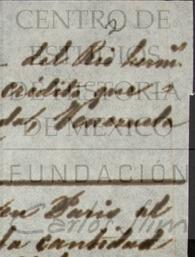 CENTRO DE
2
ESTUDIOS
del Rio herm.
DE HISTORIA
crédito que
DE MEXICO
dos Venezuela
FUNDACIÓN
en Paris el
Carlos Slim
la cantidad